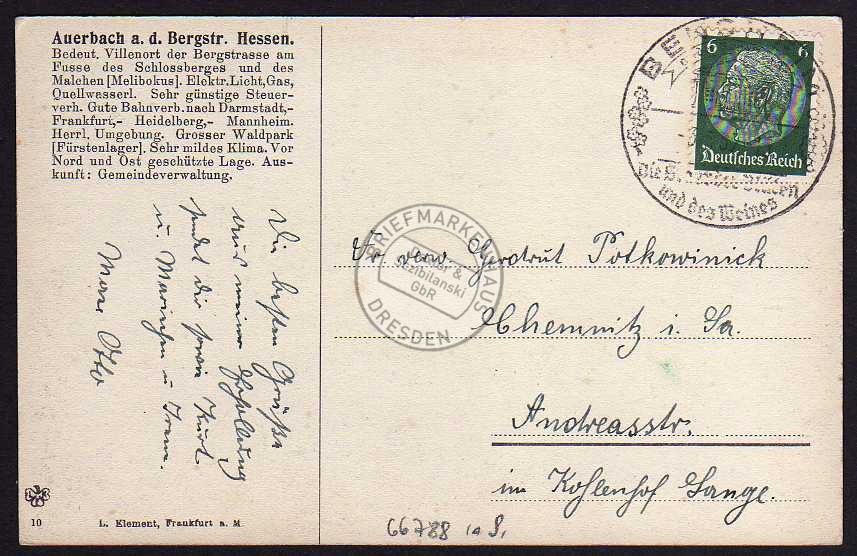 Auerbach a. d. Bergstr. Hessen.
Bedeut. Villenort der Bergstrasse am
Fusse des Schlossberges und des
Malchen [Melibokus]. Elektr. Licht, Gas,
Quellwasserl. Sehr günstige Steuer-
verh. Gute Bahnverb. nach Darmstadt,-
Frankfurt,- Heidelberg,- Mannheim.
Herrl. Umgebung. Grosser Waldpark
[Fürstenlager]. Sehr mildes Klima. Vor
Nord und Ost geschützte Lage. Aus-
kunft: Gemeindeverwaltung.
Die besten Grüße
aus meiner Erholung
sendet dir sowie Kurt
u Mariechen u Irene.
Otto
6 6
Deutsches Reich
BENSHEIM
Die
und des Weines
Fr verw. Gerdrut Potkowinick
Chemnitz i. Sa.
Andreasstr.
im Kohlenhof Lange.
BRIEFMARKENHAUS
&
GbR
DRESDEN
10
L. Klement, Frankfurt a. M
66788